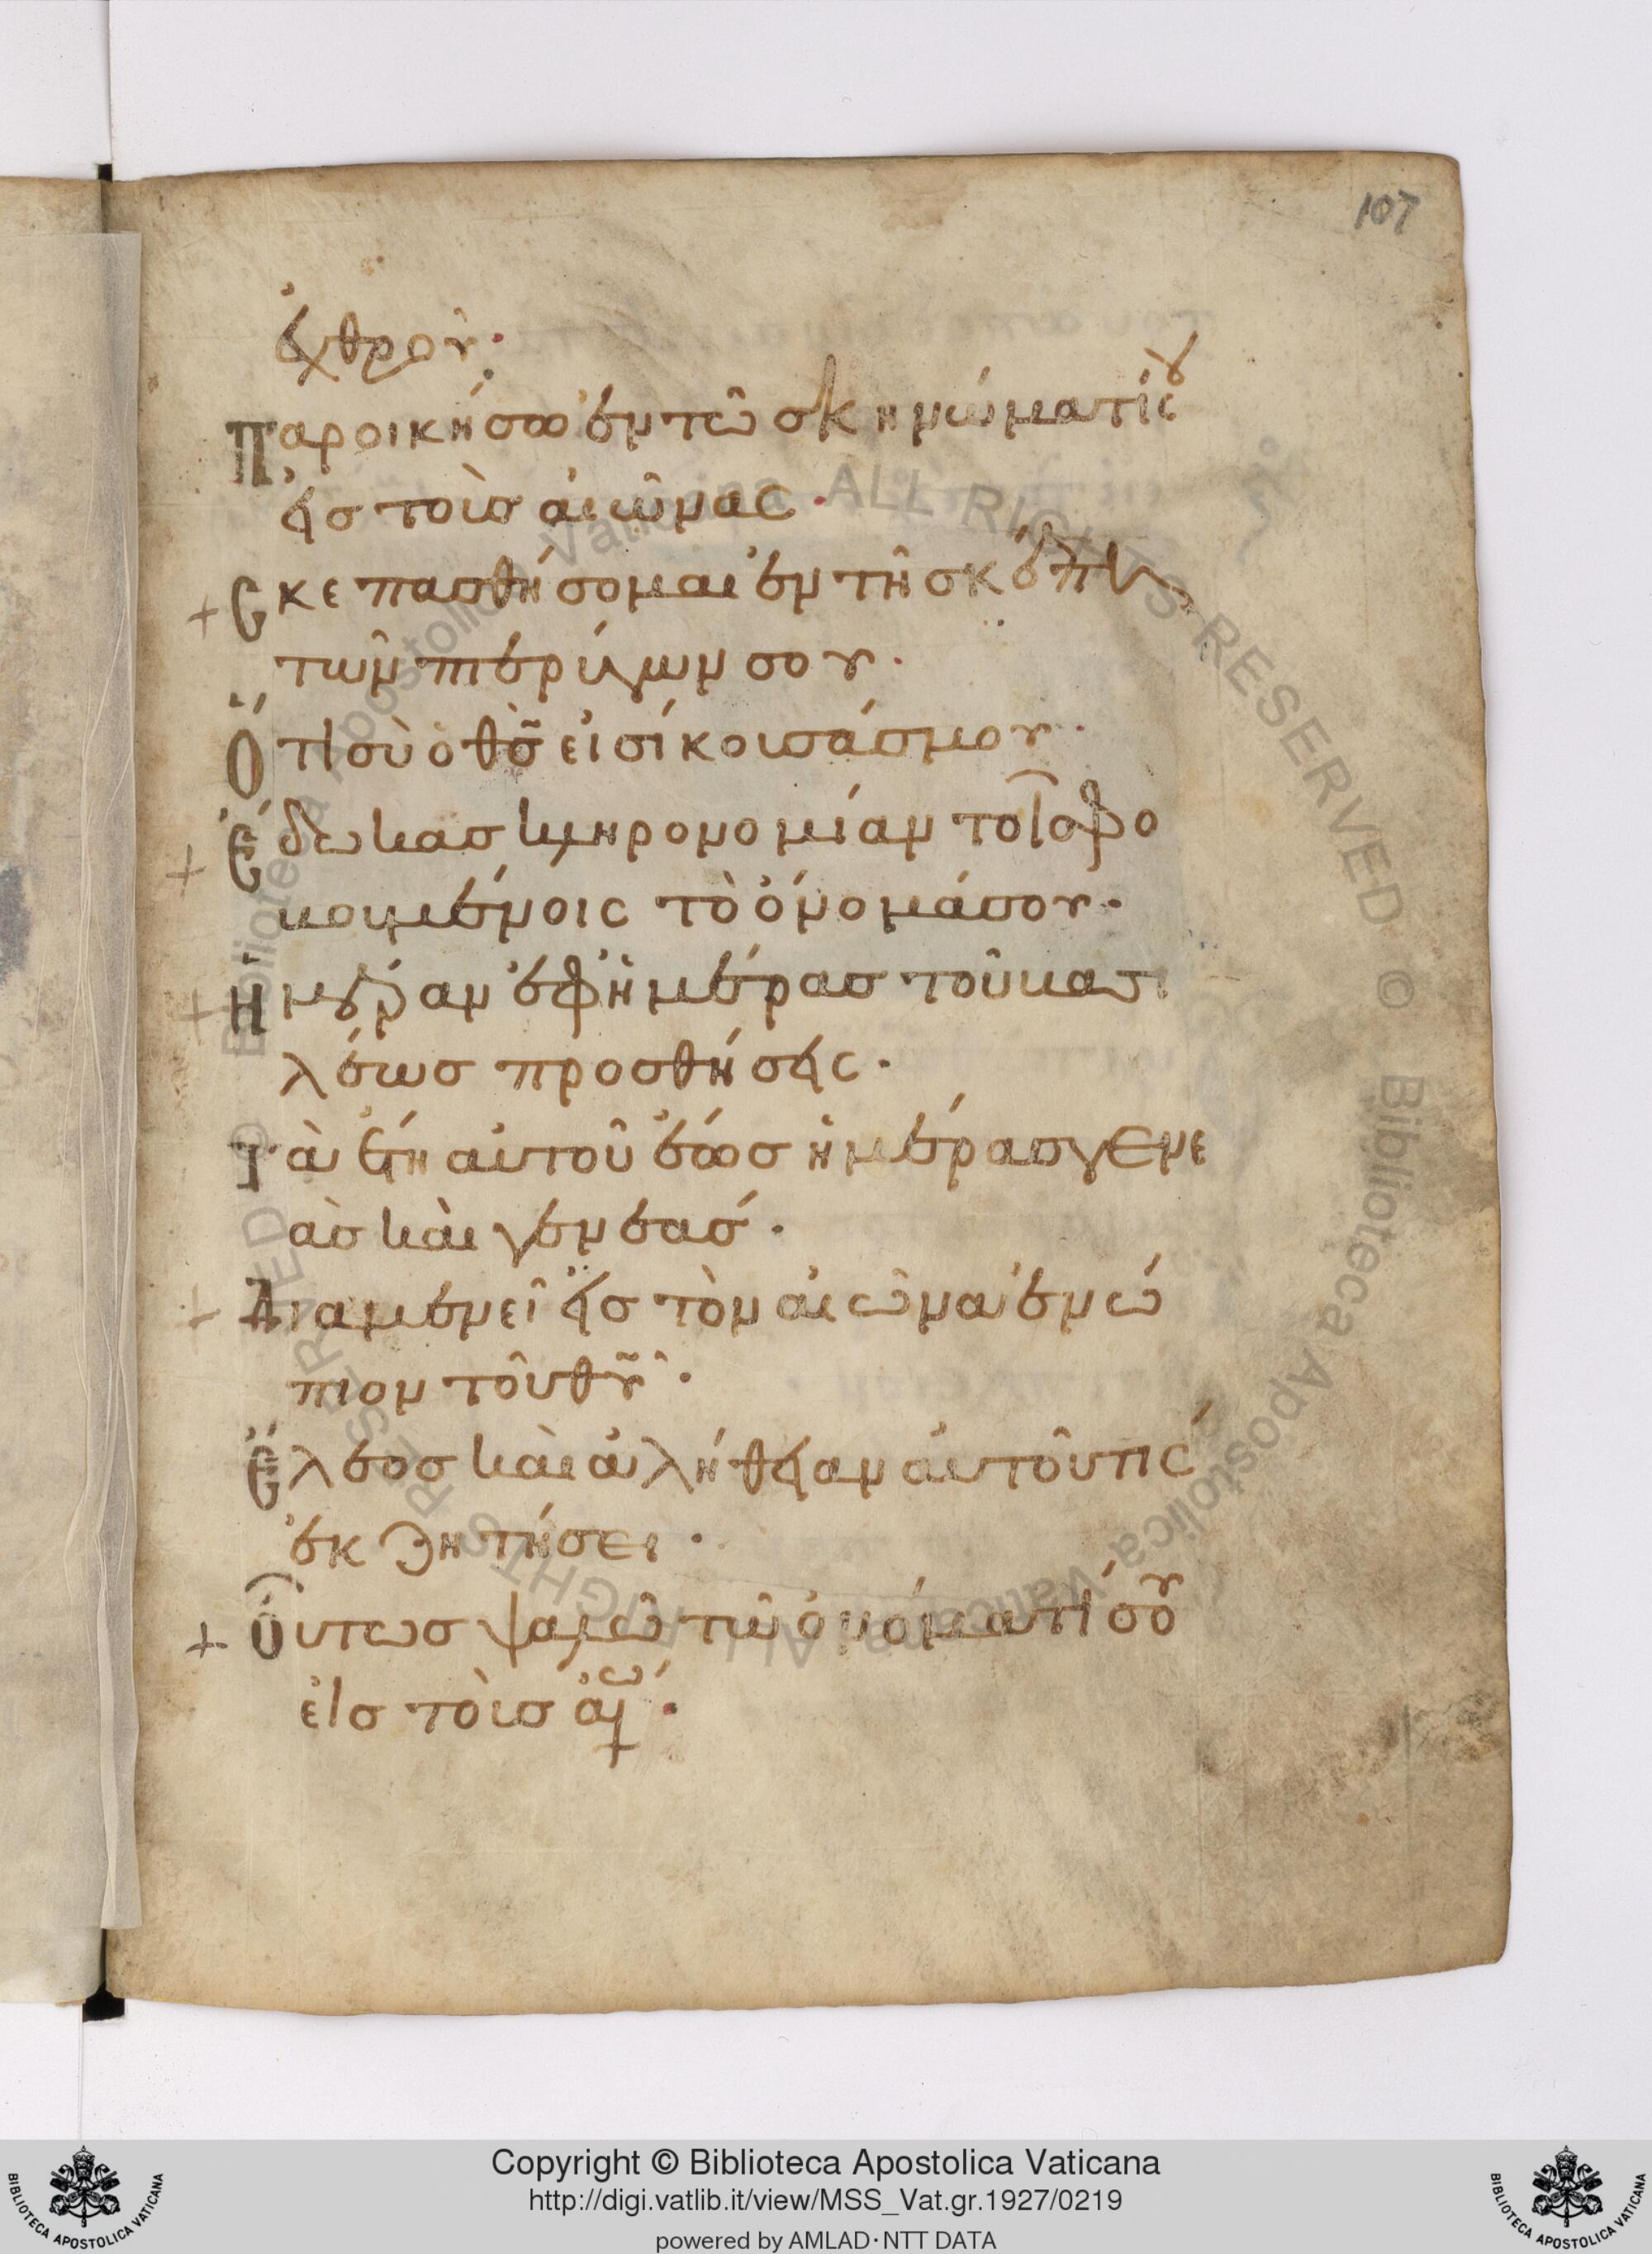 107
ἐχθροῦ·
παροικήσω ἐν τῶ σκηνώματί σου
εἰς τοὺς αἰῶνας·
+ Σκεπασθήσομαι ἐν τῆ σκέπη
τῶν πτερύγων σου·
Ὅτι σὺ ὁ θς̃ εἰσήκουσάς μου·
+ Ἔδωκας κληρονομίαν τοῖς φο
βουμένοις τὸ ὄνομά σου·
+ Ἡμέραν ἐφ ἡμέρας τοῦ βασι
λέως προσθήσεις·
Τὰ ἔτη αὐτοῦ ἕως ἡμέρας γενε
ὰς καὶ γενεάς·
+ Διαμενεῖ εἰς τὸν αἰῶνα ἐνώ
πιον τοῦ θυ̃·
Ἔλεος καὶ ἀλήθειαν αὐτοῦ τίς
ἐκζητήσει·
+ Οὕτως ψαλῶ τῶ ὀνόματί σου
εἰς τοὺς αἰῶ·
Copyright © Biblioteca Apostolica Vaticana
http://digi.vatlib.it/view/MSS_Vat.gr.1927/0219
powered by AMLAD·NTT DATA
BIBLIOTECA APOSTOLICA VATICANA
BIBLIOTECA APOSTOLICA VATICANA
© Biblioteca Apostolica Vaticana ALL RIGHTS RESERVED © Biblioteca Apostolica Vaticana ALL RIGHTS RESERVED